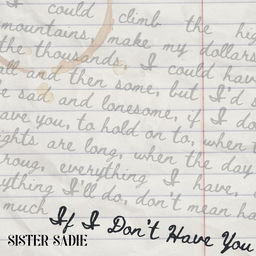 I could climb the hig
mountains, make my dollars
the thousands, I could hav
all and then some, but I'd s
be sad and lonesome, if I do
ave you, to hold on to, when t
ights are long, when the day
roug, everything I have,
ything I'll do, don't mean ha
much
If I Don't Have You
SISTER SADIE